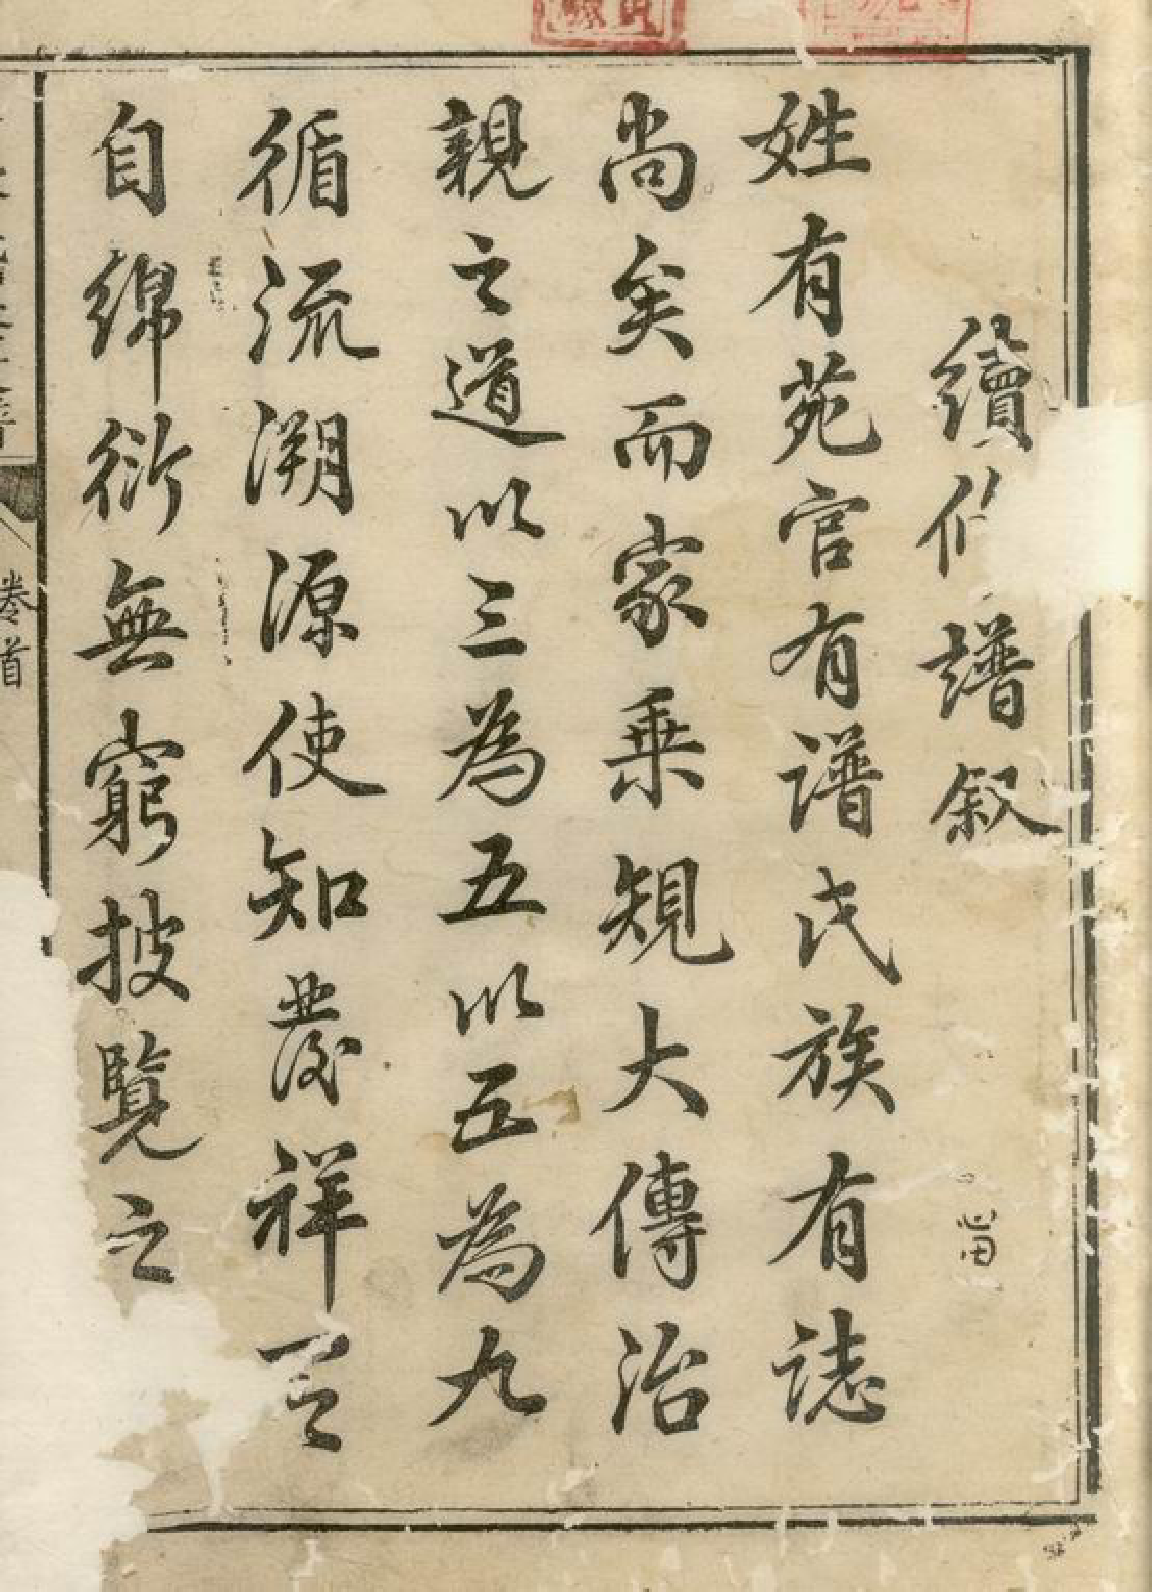 續修譜叙
姓有苑官有譜氏族有誌
尚矣而家乗規大傳治
親之道以三為五以五為九
循流溯源使知發祥之
自綿衍無窮披覽之
卷首